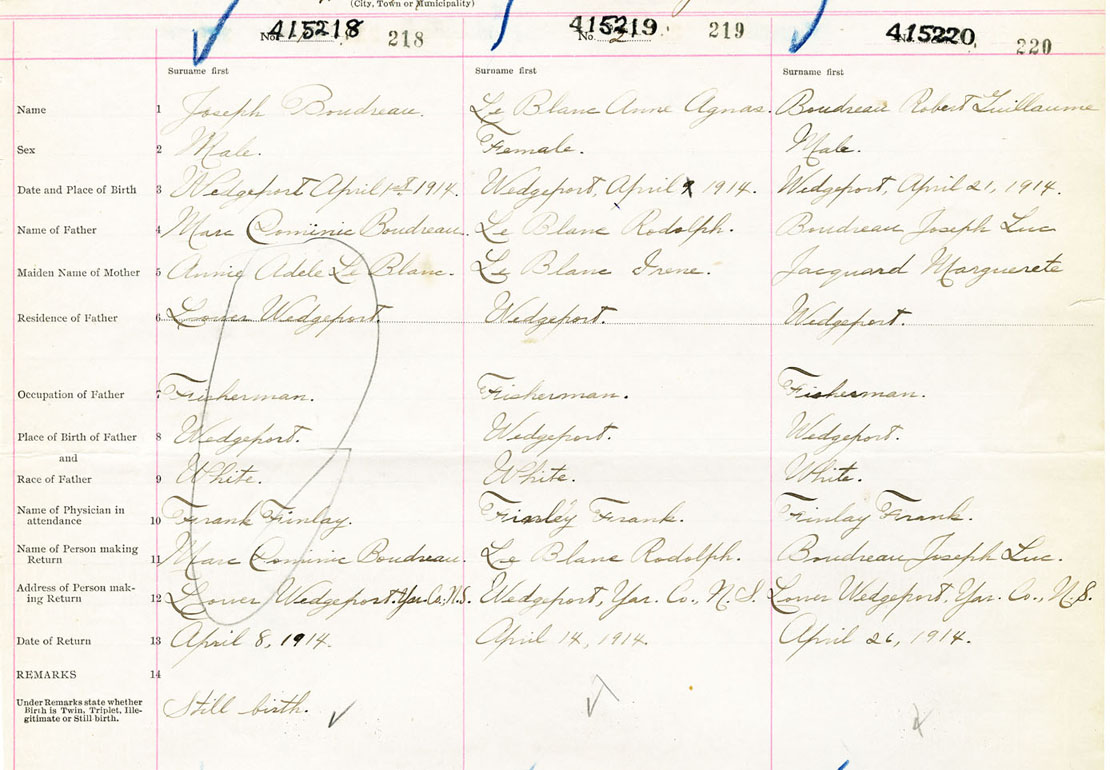 (City, Town or Municipality)
No. 415218 218 No. 415219 2 219 No. 415220 220
Surname first Surname first Surname first
Name 1 Joseph Boudreau. Le Blanc Anne Agnas. Boudreau Robert Guillaume
Sex 2 Male. Female. Male.
Date and Place of Birth 3 Wedgeport April 1st 1914. Wedgeport, April 9 1914. Wedgeport, April 21, 1914.
Name of Father 4 Marc Dominic Boudreau. Le Blanc Rodolph. Boudreau Joseph Luc
Maiden Name of Mother 5 Annie Adele Le Blanc. Le Blanc Irene. Jacquard Marguerete
Residence of Father 6 Lower Wedgeport. Wedgeport. Wedgeport.
Occupation of Father 7 Fisherman. Fisherman. Fisherman.
Place of Birth of Father 8 Wedgeport. Wedgeport. Wedgeport.
and
Race of Father 9 White. White. White.
Name of Physician in
attendance 10 Frank Finlay. Finley Frank. Finlay Frank.
Name of Person making
Return 11 Marc Dominic Boudreau. Le Blanc Rodolph. Boudreau Joseph Luc.
Address of Person mak-
ing Return 12 Lower Wedgeport. Yar. Co., N.S. Wedgeport, Yar. Co., N.S. Lower Wedgeport, Yar. Co., N.S.
Date of Return 13 April 8, 1914. April 14, 1914. April 26, 1914.
REMARKS 14
Under Remarks state whether
Birth is Twin, Triplet, Ille-
gitimate or Still birth. Still birth.